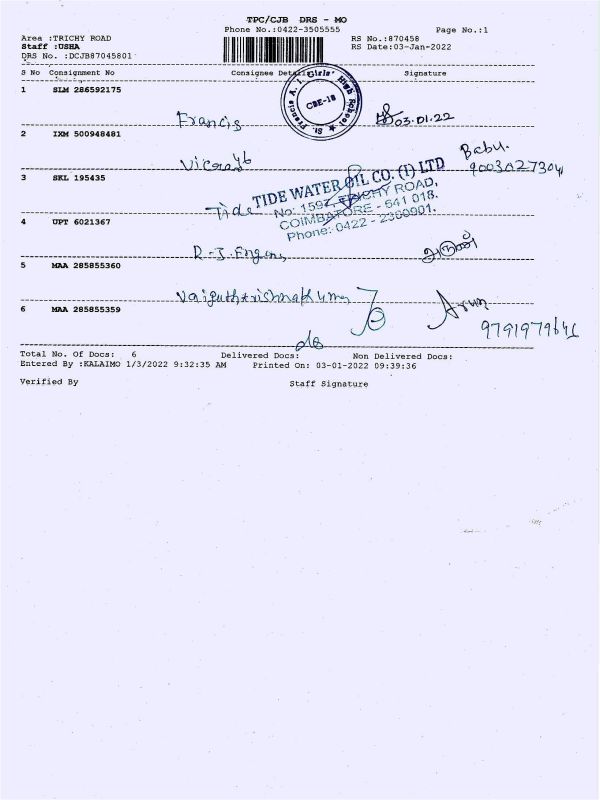 TPC/CJB DRS - MO
Phone No.:0422-3505555 Page No.:1
Area :TRICHY ROAD RS No.:870458
Staff :USHA RS Date:03-Jan-2022
DRS No. :DCJB87045801
S No Consignment No Consignee Details Signature
1 SLM 286592175
St. Francis A. I. Girls' High School
CBE-18
Francis 03.01.22
2 IXM 500948481
Babu.
9003027304
3 SKL 195435
TIDE WATER OIL CO. (I) LTD
Tide No: 1597, TRICHY ROAD,
COIMBATORE - 641 018.
Phone: 0422 - 2300901.
4 UPT 6021367
R-J. Engens அருண்
5 MAA 285855360
Vaiguthkrishnakumar
Arun
6 MAA 285855359
do
Total No. Of Docs: 6 Delivered Docs: Non Delivered Docs:
Entered By :KALAIMO 1/3/2022 9:32:35 AM Printed On: 03-01-2022 09:39:36
Verified By Staff Signature